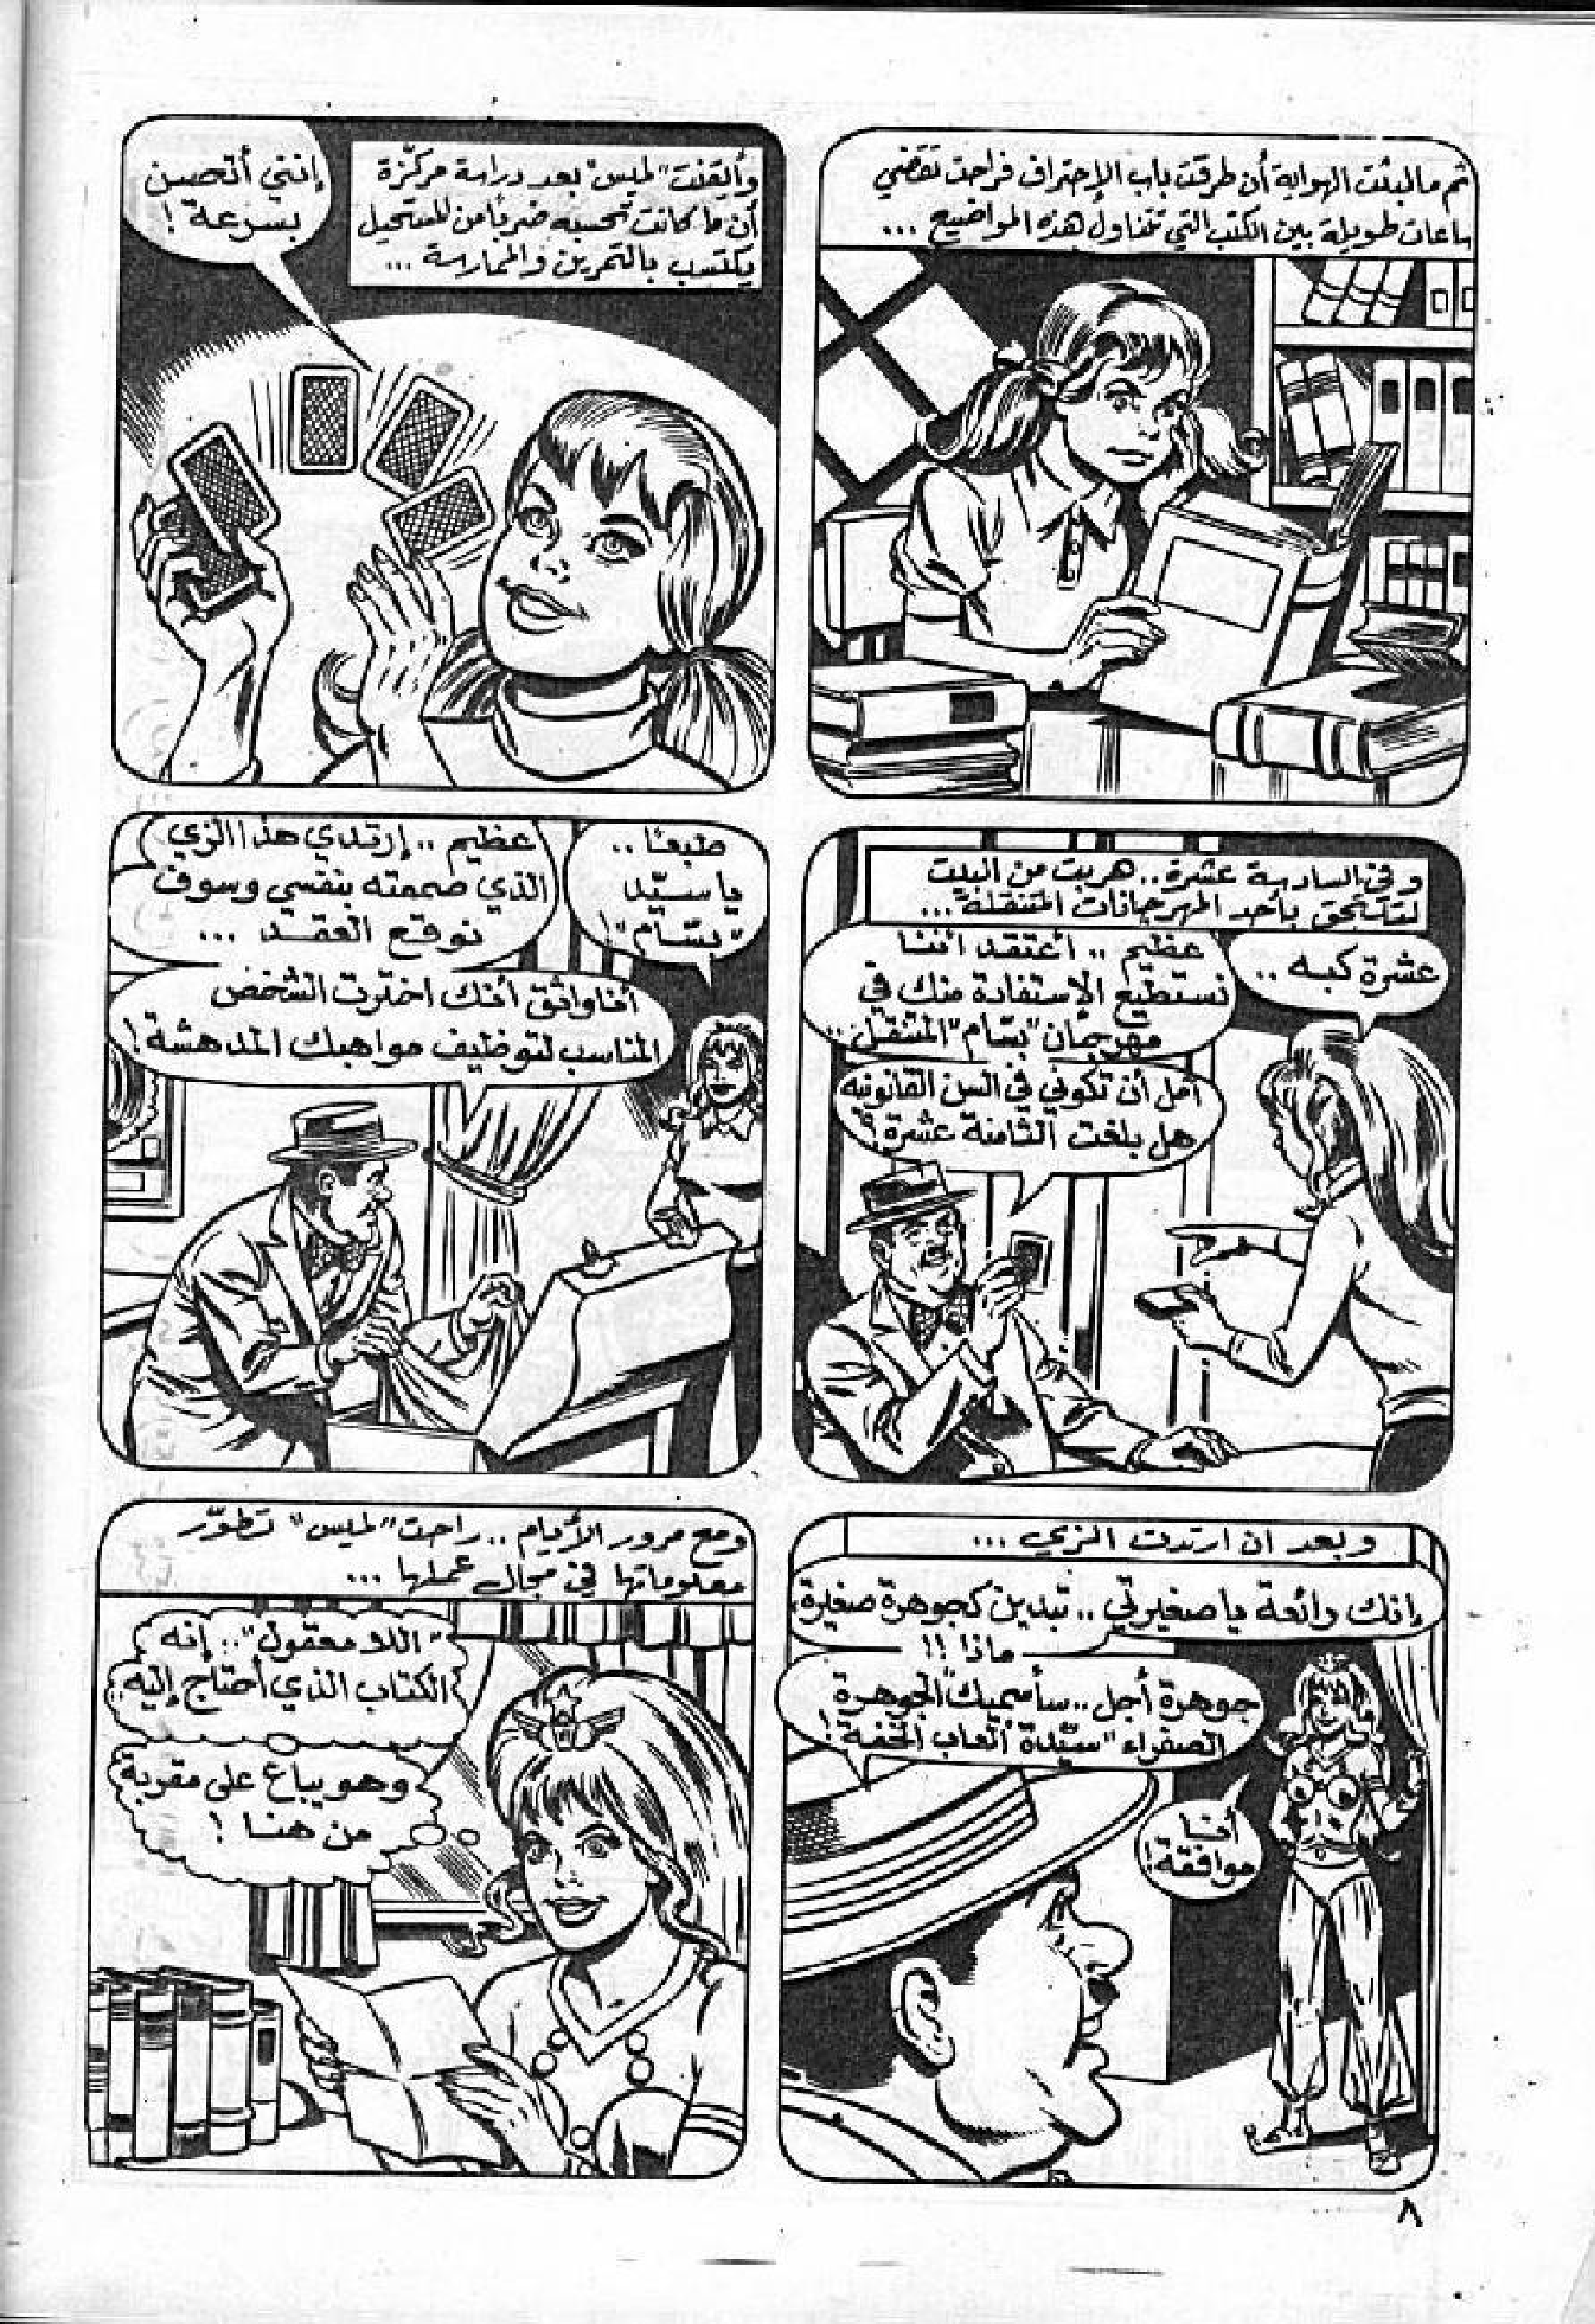 ثم ما لبثت الهواية أن طرقت باب الإحتراف فراحت تقضي
ساعات طويلة بين الكتب التي تتناول هذه المواضيع ...
وأيقنت "لميس" بعد دراسة مركّزة
أن ما كانت تحسبه ضربًا من المستحيل
يكتسب بالتمرين والممارسة ...
إنني أتحسن
بسرعة !
وفي السادسة عشرة .. هربت من البيت
لتلتحق بأحد المهرجانات المتنقلة ...
عشرة كبه ..
عظيم .. أعتقد أننا
نستطيع الإستفادة منك في
مهرجان "بسّام" المتنقل ..
آمل أن تكوني في السن القانونية
هل بلغت الثامنة عشرة ؟
طبعًا ..
يا سيّد
"بسّام" !
عظيم .. إرتدي هذا الزي
الذي صممته بنفسي وسوف
نوقع العقد ...
أنا واثق أنك اخترت الشخص
المناسب لتوظيف مواهبك المدهشة !
وبعد ان ارتدت الزي ...
إنك رائعة يا صغيرتي .. تبدين كجوهرة صغيرة
ماذا !!
جوهرة أجل .. سأسميك "الجوهرة
الصفراء" سيّدة ألعاب الخفة !
أنا
موافقة !
ومع مرور الأيام .. راحت "لميس" تطوّر
معلوماتها في مجال عملها ...
"اللا معقول" .. إنه
الكتاب الذي أحتاج إليه !
وهو يباع على مقربة
من هنا !
٨